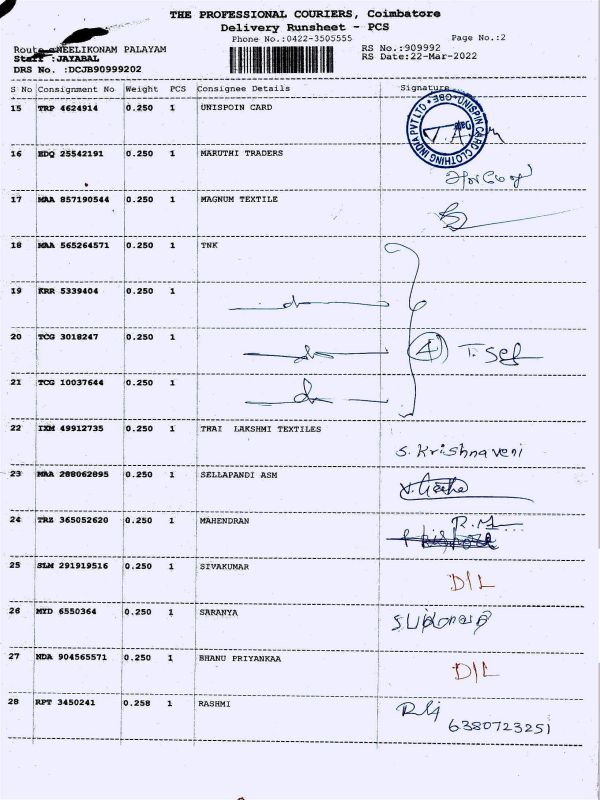 THE PROFESSIONAL COURIERS, Coimbatore
Delivery Runsheet - PCS
Phone No.:0422-3505555 Page No.:2
Route :NEELIKONAM PALAYAM RS No.:909992
Staff :JAYABAL RS Date:22-Mar-2022
DRS No. :DCJB90999202
S No Consignment No Weight PCS Consignee Details Signature
15 TRP 4624914 0.250 1 UNISPOIN CARD
UNISPIN CARD CLOTHING INDIA PVT LTD CBE
16 EDQ 25542191 0.250 1 MARUTHI TRADERS
17 MAA 857190544 0.250 1 MAGNUM TEXTILE
18 MAA 565264571 0.250 1 TNK
19 KRR 5339404 0.250 1
20 TCG 3018247 0.250 1 4
21 TCG 10037644 0.250 1
22 IXM 49912735 0.250 1 THAI LAKSHMI TEXTILES
S. Krishnaveni
23 MAA 288062895 0.250 1 SELLAPANDI ASM
24 TRZ 365052620 0.250 1 MAHENDRAN
25 SLM 291919516 0.250 1 SIVAKUMAR
D/L
26 MYD 6550364 0.250 1 SARANYA
27 NDA 904565571 0.250 1 BHANU PRIYANKAA
D/L
28 RPT 3450241 0.258 1 RASHMI
6380723251